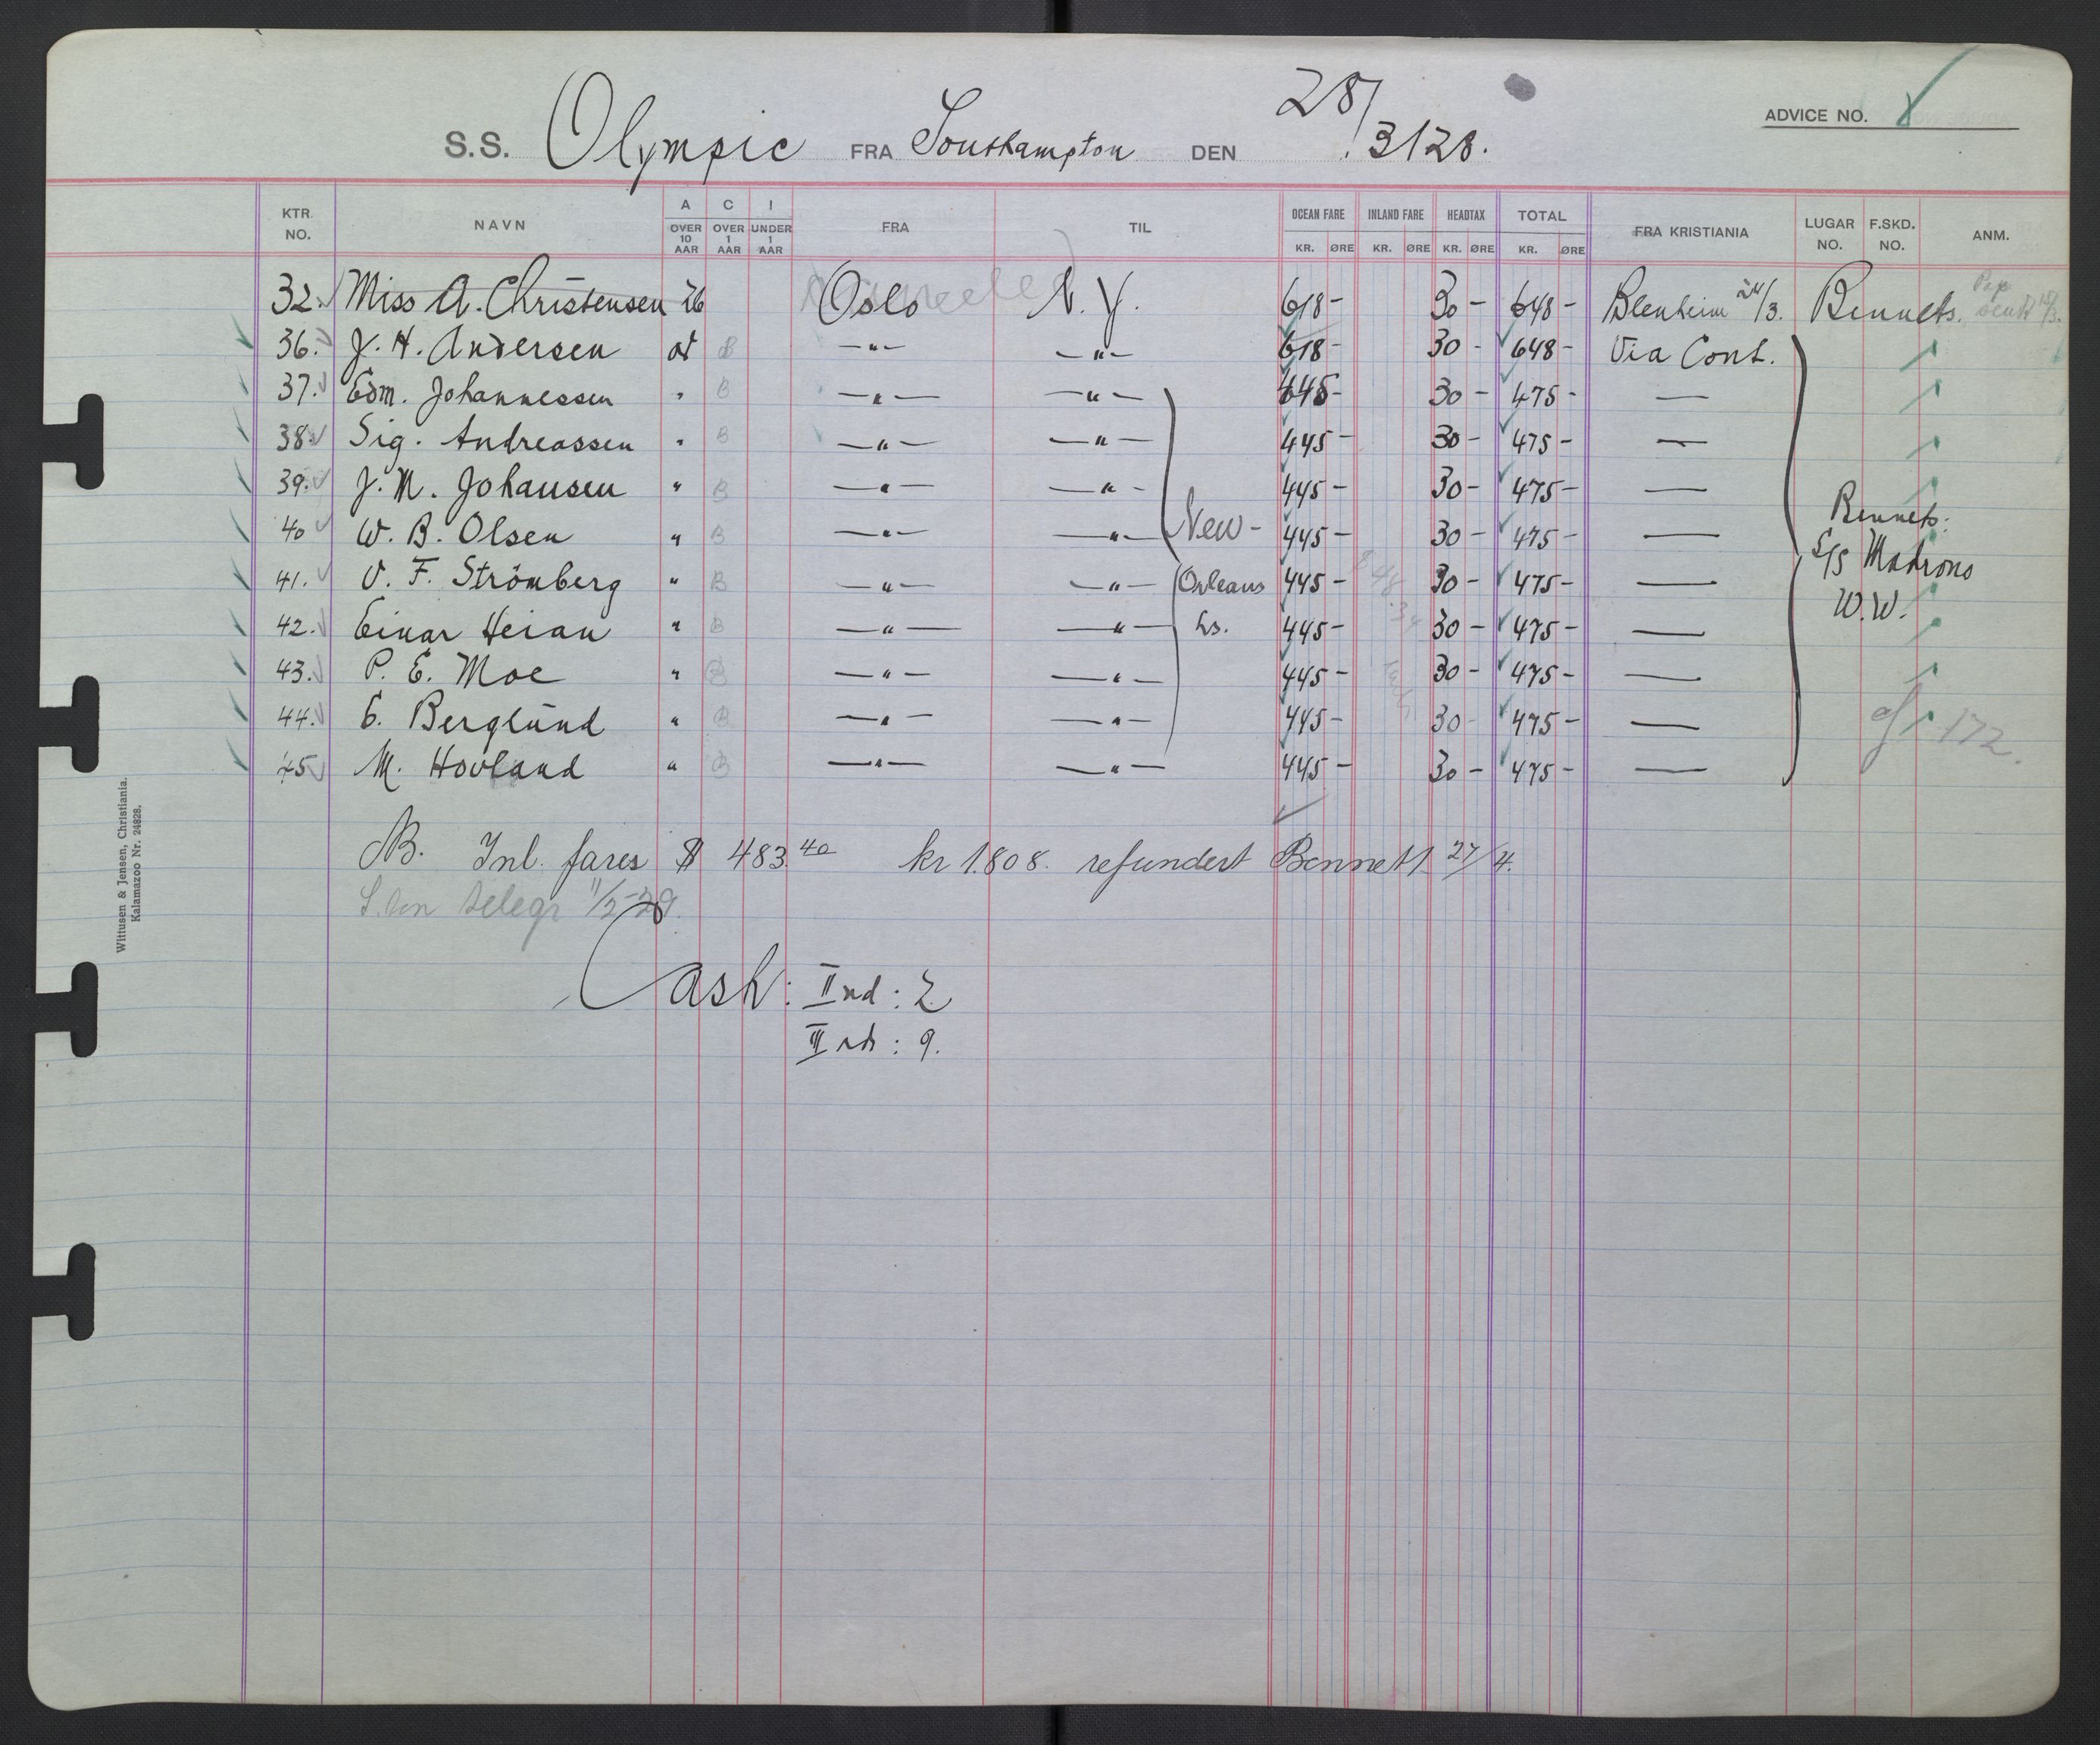 28/
ADVICE NO.
S.S. Olympic FRA Southampton DEN 3/28.
KTR. NO. NAVN A OVER 10 AAR C OVER 1 AAR I UNDER 1 AAR FRA TIL OCEAN FARE KR. ØRE INLAND FARE KR. ØRE HEADTAX KR. ØRE TOTAL KR. ØRE FRA KRISTIANIA LUGAR NO. F.SKD. NO. ANM.
32. Miss A. Christensen 26 Oslo N.Y. 618- 30- 648- Blenheim 24/3. Bennets.
36. J. H. Andersen ad B -"- -"- 618- 30- 648- Via Cont.
37. Edm. Johannessen " B -"- -"- 445- 30- 475- —
38. Sig. Andreassen " B -"- -"- 445- 30- 475- —
39. J. M. Johansen " B -"- -"- 445- 30- 475- —
40 W. B. Olsen " B -"- -"- New- 445- 30- 475- — Bennets.
41. V. F. Strömberg " B -"- -"- Orleans 445- 30- 475- — S/S Madrono
42. Einar Heian " B -"- -"- Ls. 445- 30- 475- — W.W.
43. P. E. Moe " B -"- -"- 445- 30- 475- —
44. E. Berglund " B -"- -"- 445- 30- 475- — 172.
45 M. Hovland " B -"- -"- 445- 30- 475- —
NB. Inl. fares $ 483.40 kr 1.808. refundert Bennett 27/4.
telegr 11/5-28.
Cash: II nd: 2
III rd: 9.
Wittusen & Jensen, Christiania.
Kalamazoo Nr. 24828.